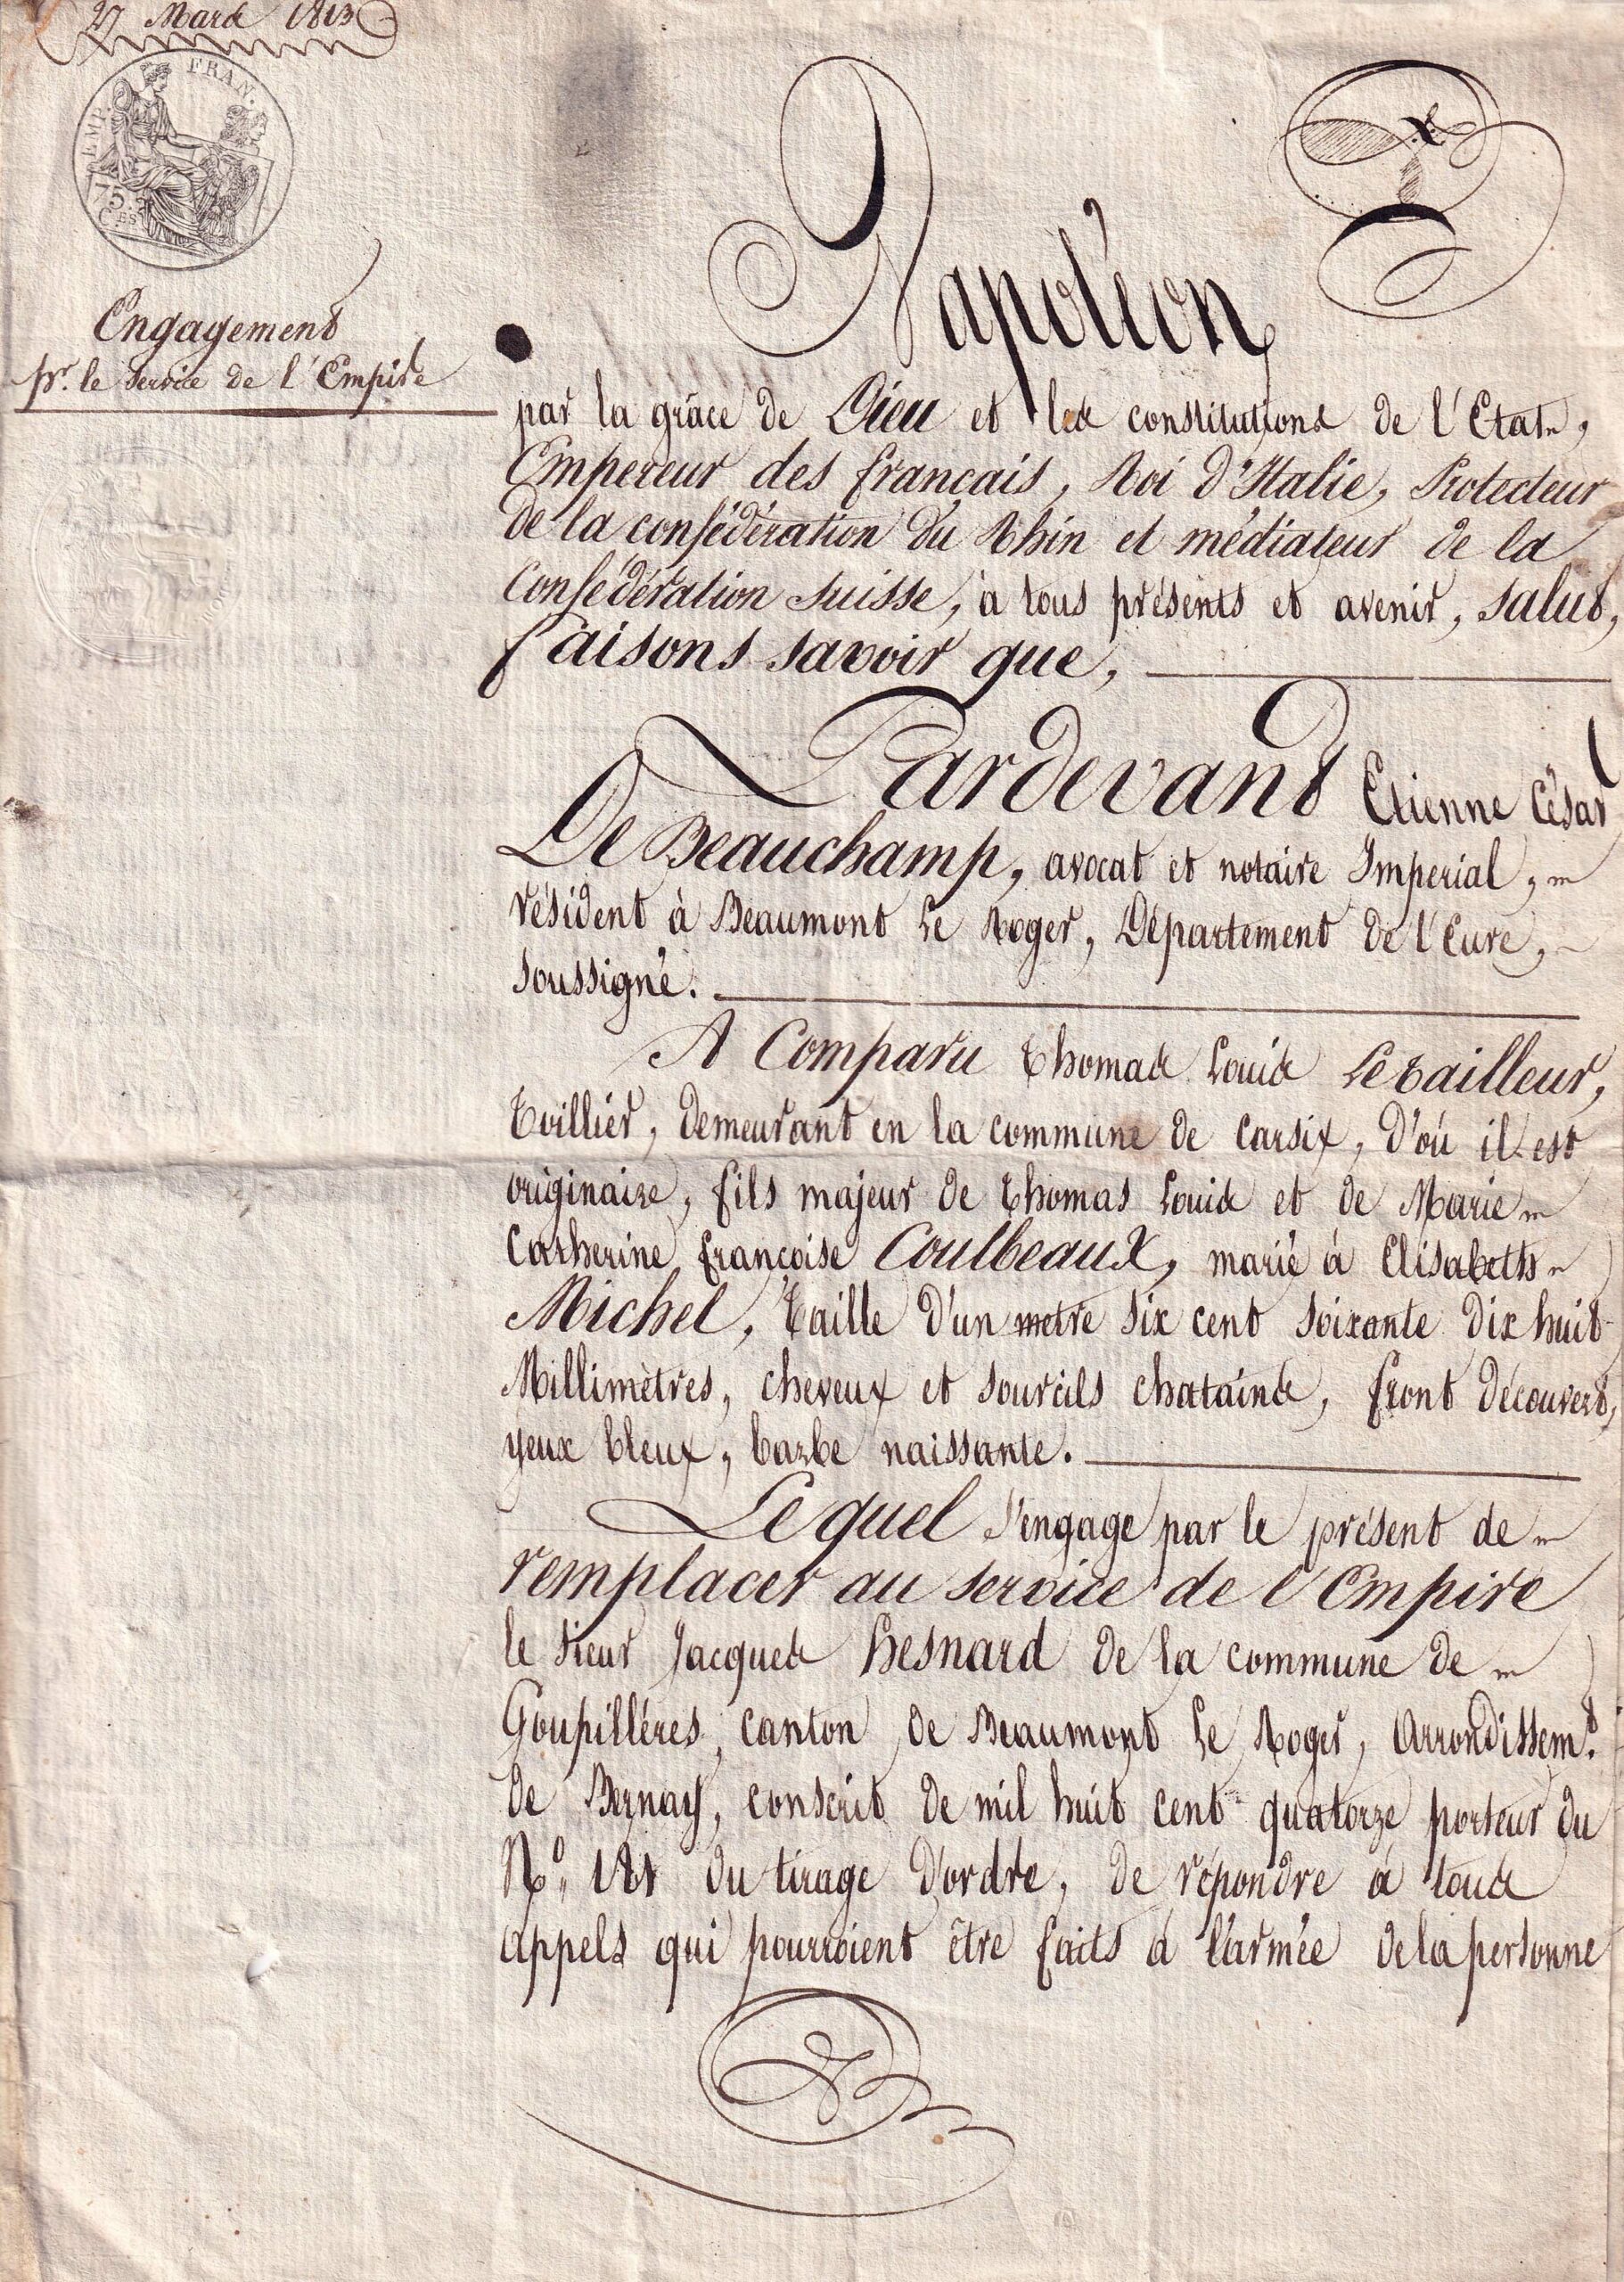 27 Mars 1813
EMP. FRAN.
75.
C.ES
Engagement
pr. le service de l'Empire
Napoléon
par la grâce de Dieu et les constitutions de l'Etat,
Empereur des français, Roi d'Italie, Protecteur
de la confédération du Rhin et médiateur de la
Confédération suisse, à tous présents et avenir, salut,
faisons savoir que,
Pardevant Etienne César
De Beauchamp, avocat et notaire Imperial,
résident à Beaumont Le Roger, Département de l'Eure,
soussigné.
A Comparu Thomas Louis Letailleur,
Toillier, demeurant en la commune de Carsix, d'où il est
originaire, fils majeur de Thomas Louis et de Marie
Catherine françoise Coulbeaux, marié à Elisabeth
Michel, taille d'un metre six cent soixante dix huit
Millimètres, cheveux et sourcils chatains, front découvert,
yeux bleux, barbe naissante.
Le quel s'engage par le présent de
remplacer au service de l'Empire
le sieur Jacques Hesnard de la commune de
Goupilléres, canton de Beaumont Le Roger, Arrondissemt.
de Bernay, conscrit de mil huit cent quatorze porteur du
No. 181 du tirage d'ordre, de répondre à tous
appels qui pourroient être faits à l'armée de la personne